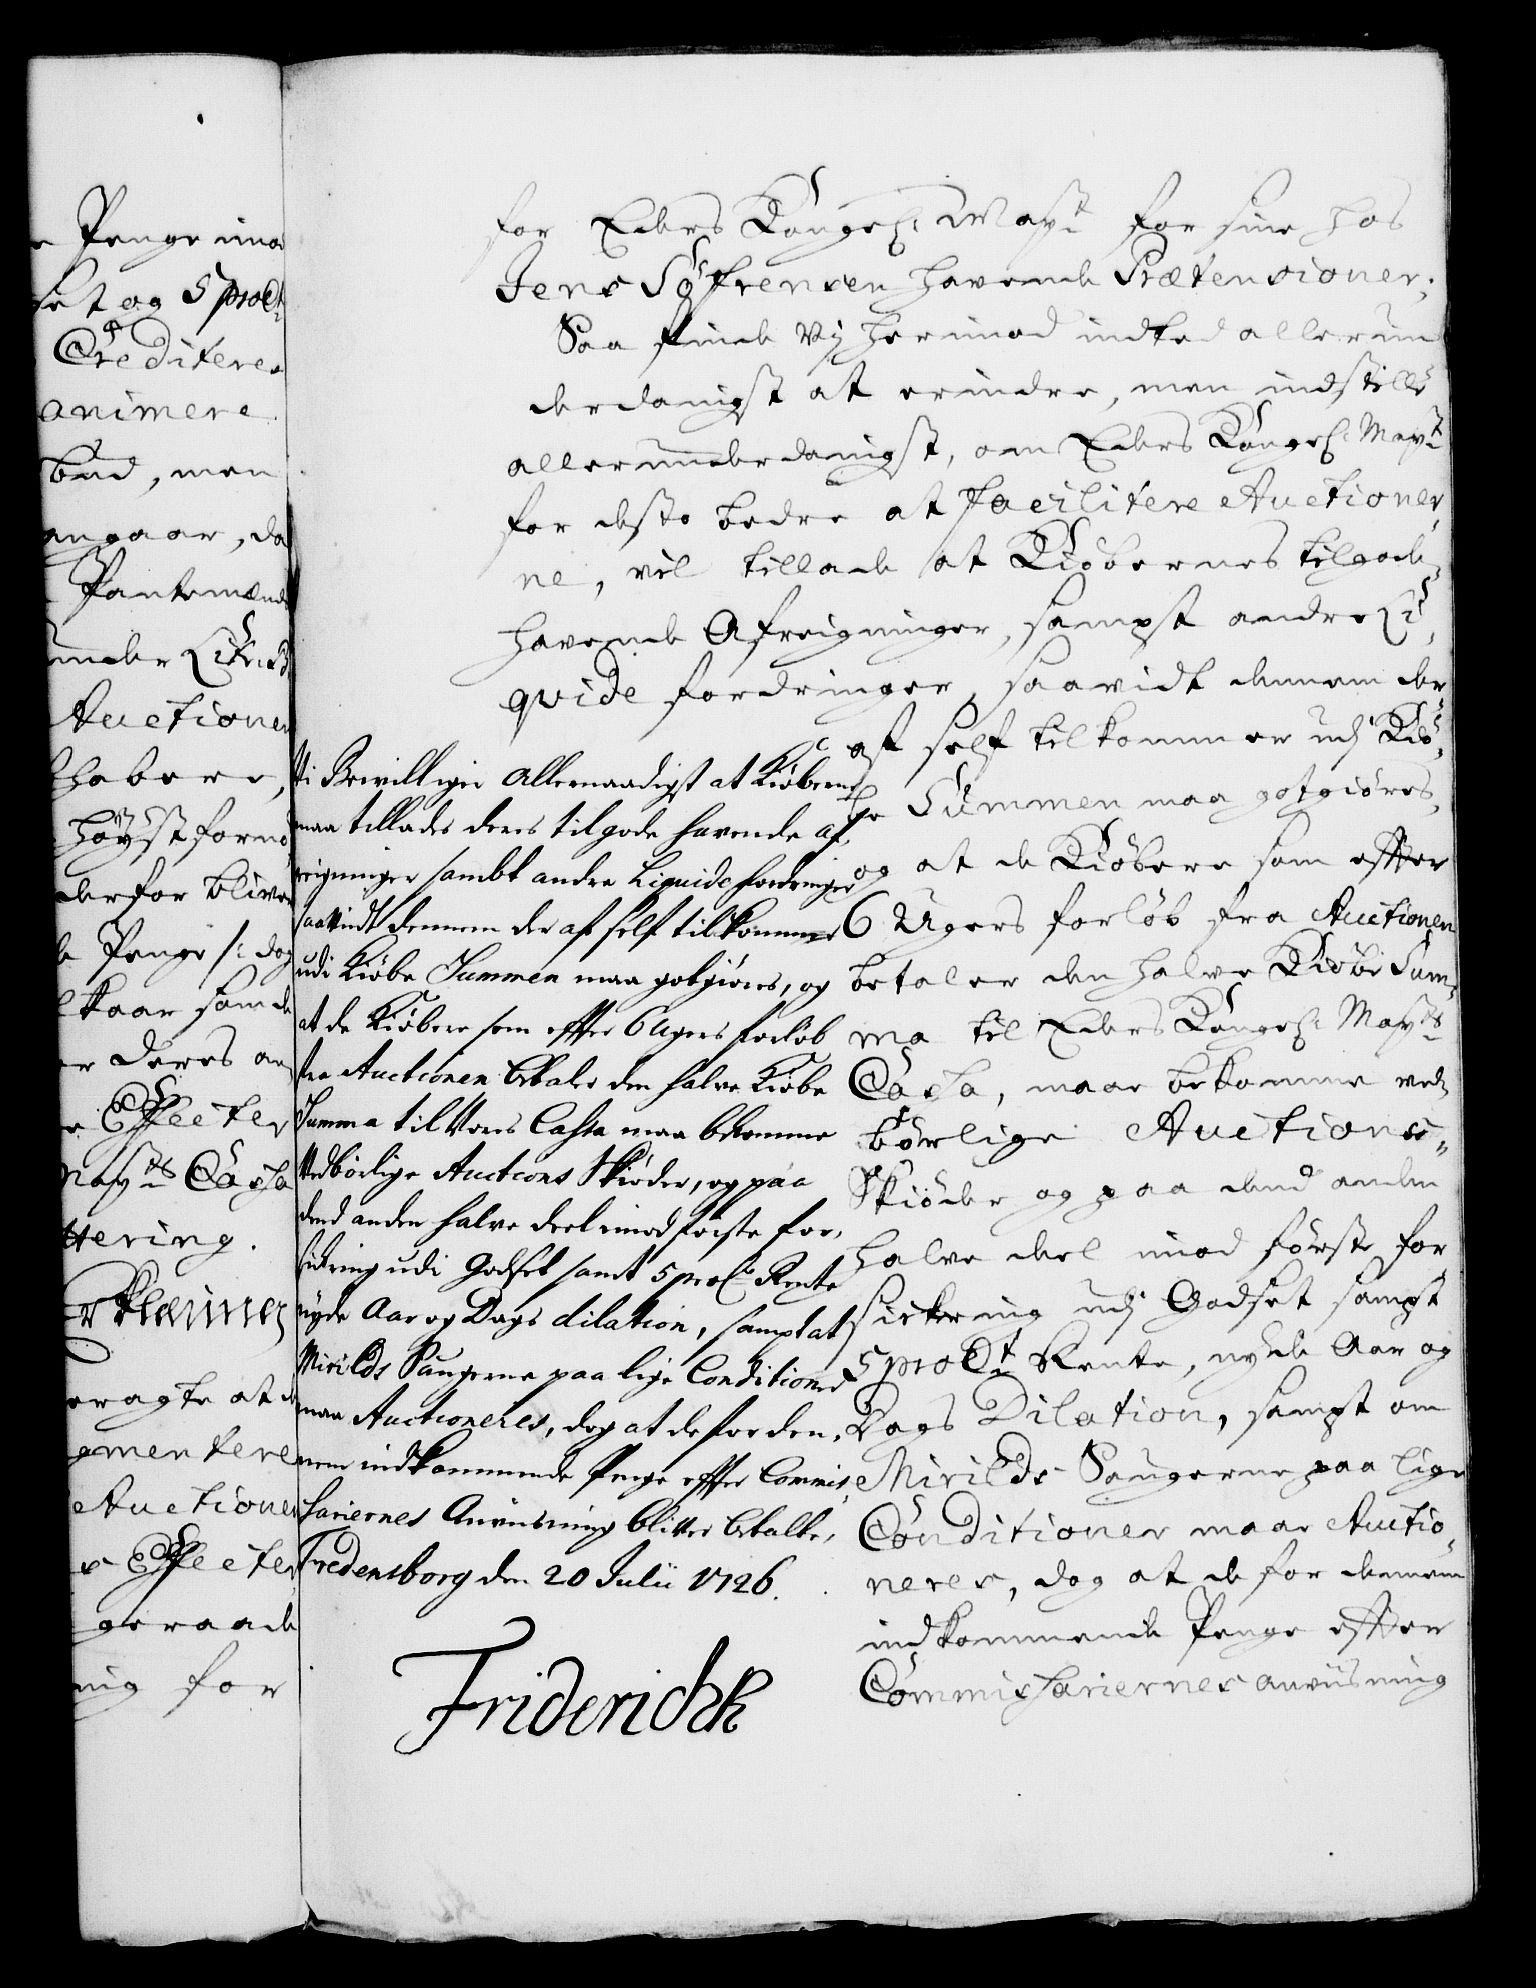 e Penge imod
set og 5 proCt:
Creditere
animere
bud, men
angaar, da
Pantemænd
under
Auctionen
habere,
höyst fornö
derfor bliver
Penge /: dog
som de
er deres an
e Effecter
Mayts Cassa
ttering.
Erklæringer
eragte at de
gmentere
Auctioner
s Effecter
geraade
nig for
for Eders Kongel: Mayt: for sine hos
Jens Söfrensen havende Prætensioner;
Saa finde Vj herimod indted allerun
derdanigst at erindre, men indstille
allerunderdanigst, om Eders Kongel: Mayt:
for desto bedre at facilitere Auctioner
ne, vil tillade at Kiöbernes tilgode
havende Afreigninger, sampt andre Li,
qvide fordringer, saavidt dennem der
af self tilkommer udj Kiö,
be Summen maa gotgiöres,
og at de Kiöbere som effter
6 Ugers forlöb fra Auctionen
betaler den halve Kiöbe Sum,
ma til Eders Kongel: Mayts
Cassa, maae bekomme ved
börlige Auctions,,
Skiöder og paa dend anden
halve deel imod förste for
sickering udj Godset sampt
5 proCt: Rente, nyde Aar og
Dags Dilation, sampt om
Mirilds Saugerne paa lige
Conditioner maae Auctio,
neres, dog at de for dennem
indkommende Penge effter
Commissariernes anviisning
Vi Bevilliger Allernaadigst at Kiöberne
maa tillades deres tilgode havende af,
reigninger sambt andre Liquide fordringer
saavidt dennem der af self tilkommer
udi Kiöbe Summen maa gotgiöres, og
at de Kiöbere som effter 6 Ugers forlöb
fra Auctionen betaler den halve Kiöbe
Summa til Vores Cassa maa bekomme
Vedbörlige Auctions Skiöder, og paa
dend anden halve deel imod förste for,
sickring udi Godset samt 5 proCto Rente
nyde Aar og Dags dilation, sampt at
Mirilds Saugerne paa lige Conditioner
maa Auctioneres, dog at de for den,
nem indkommende Penge effter Commis,
sariernes Anviisning bliver betalte,
Fredensborg den 20 Julii 1726.
Friderich R